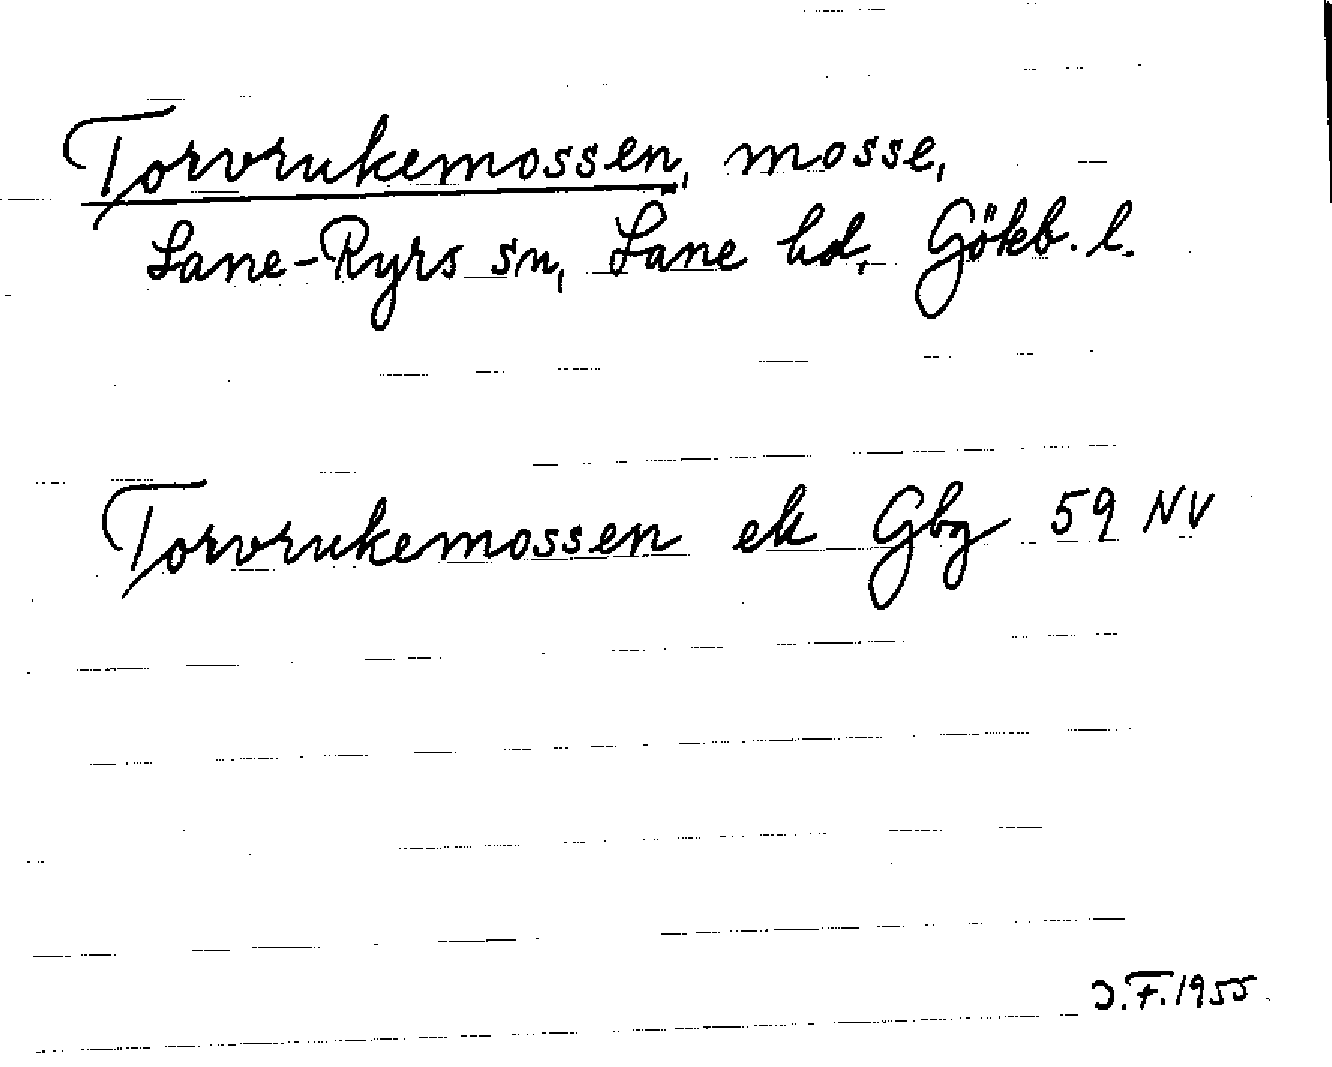 Torvrukemossen, mosse,
Lane-Ryrs sn, Lane hd, Gökb. l.
Torvrukemossen ek Gbg 59 NV
J.F. 1955